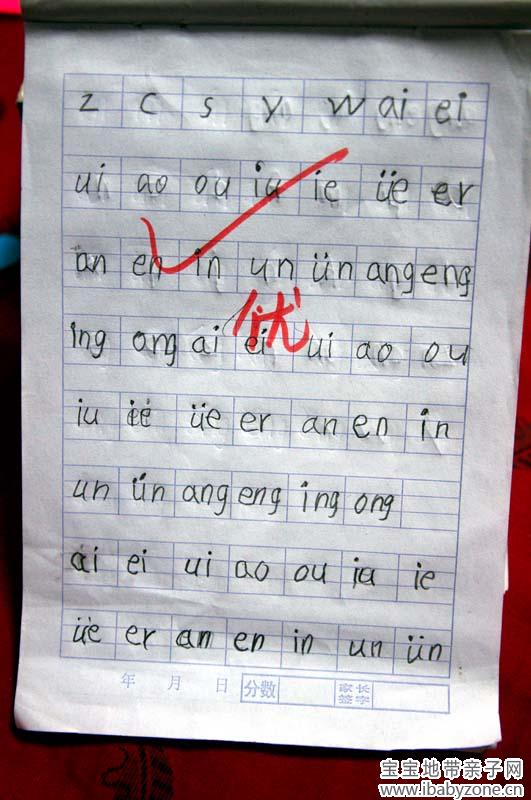 z c s y w ai ei
ui ao ou iu ie üe er
an en in un ün ang eng
优
ing ong ai ei ui ao ou
iu ie üe er an en in
un ün ang eng ing ong
ai ei ui ao ou iu ie
üe er an en in un ün
年 月 日 分数 家长签字
宝宝地带亲子网
www.ibabyzone.cn